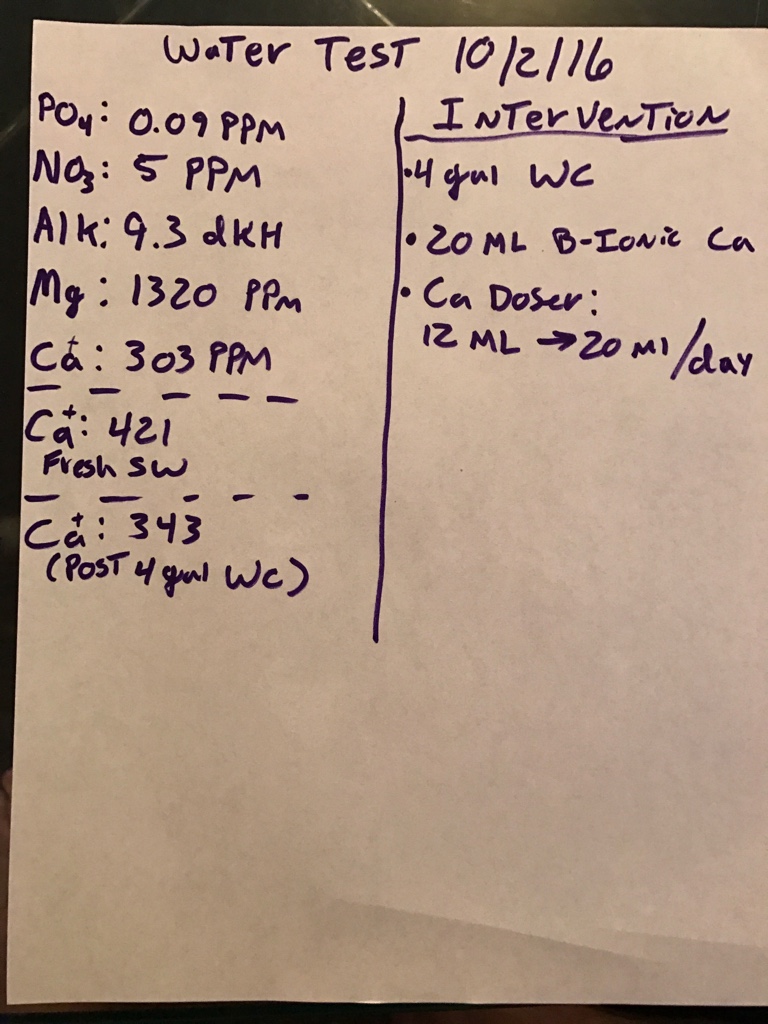 Water Test 10/2/16
PO4: 0.09 PPM
NO3: 5 PPM
Alk: 9.3 dKH
Mg: 1320 PPm
Ca+: 303 PPM
Ca+: 421
Fresh SW
Ca+: 343
(Post 4 gal WC)
Intervention
• 4 gal WC
• 20 ML B-Ionic Ca
• Ca Doser:
12 ML → 20 Ml/day